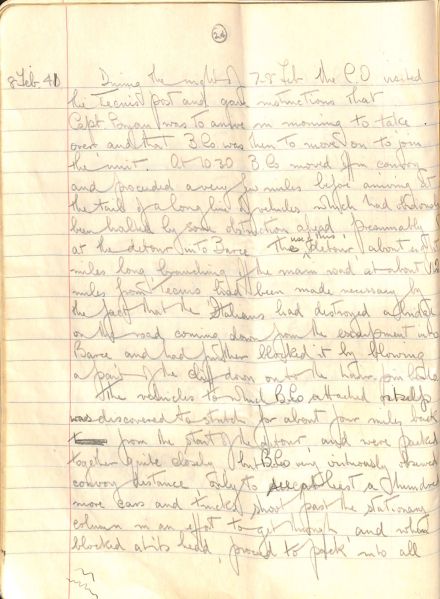 24
8 Feb 41 During the night of 7-8 Feb the C.O visited
the Tecnis post and gave instructions that
Capt. was to arrive in morning to take
over and that B Co was then to move on to join
the unit. At 1030 B Co moved in convoy
and proceeded a very few miles before arriving at
the tail of a long line of vehicles which had obviously
been halted by some obstruction ahead presumably
at the detour into Barce. The use of this detour, about
miles long branching off the main road at about 1½
miles from Tecnis had been made necessary by
the fact that the Italians had destroyed a bridge
on the road coming down from the escarpment into
Barce and had further blocked it by blowing
a part of the cliff down onto the hair pin bends.
The vehicles to which B Co attached itself
was discovered to stretch for about four miles back
from the start of the detour, and were packed
together quite closely, but B Co very virtuously observed
convoy distance only to see at least a hundred
more cars and trucks shoot past the stationary
column in an effort to get through, and when
blocked at its head, proceed to pack into all